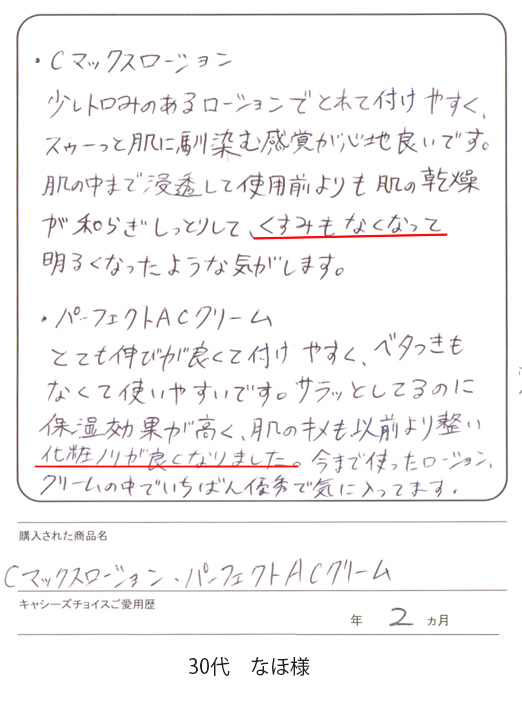 ・Cマックスローション
少しトロみのあるローションでとれて付けやすく、
スゥーっと肌に馴染む感覚が心地良いです。
肌の中まで浸透して使用前よりも肌の乾燥
が和らぎしっとりして、くすみもなくなって
明るくなったような気がします。
・パーフェクトACクリーム
とても伸びが良くて付けやすく、ベタつきも
なくて使いやすいです。サラッとしてるのに
保湿効果が高く、肌のキメも以前より整い
化粧ノリが良くなりました。今まで使ったローション、
クリームの中でいちばん優秀で気に入ってます.
購入された商品名
Cマックスローション・パーフェクトACクリーム
キャシーズチョイスご愛用歴
年 2 ヵ月
30代 なほ様